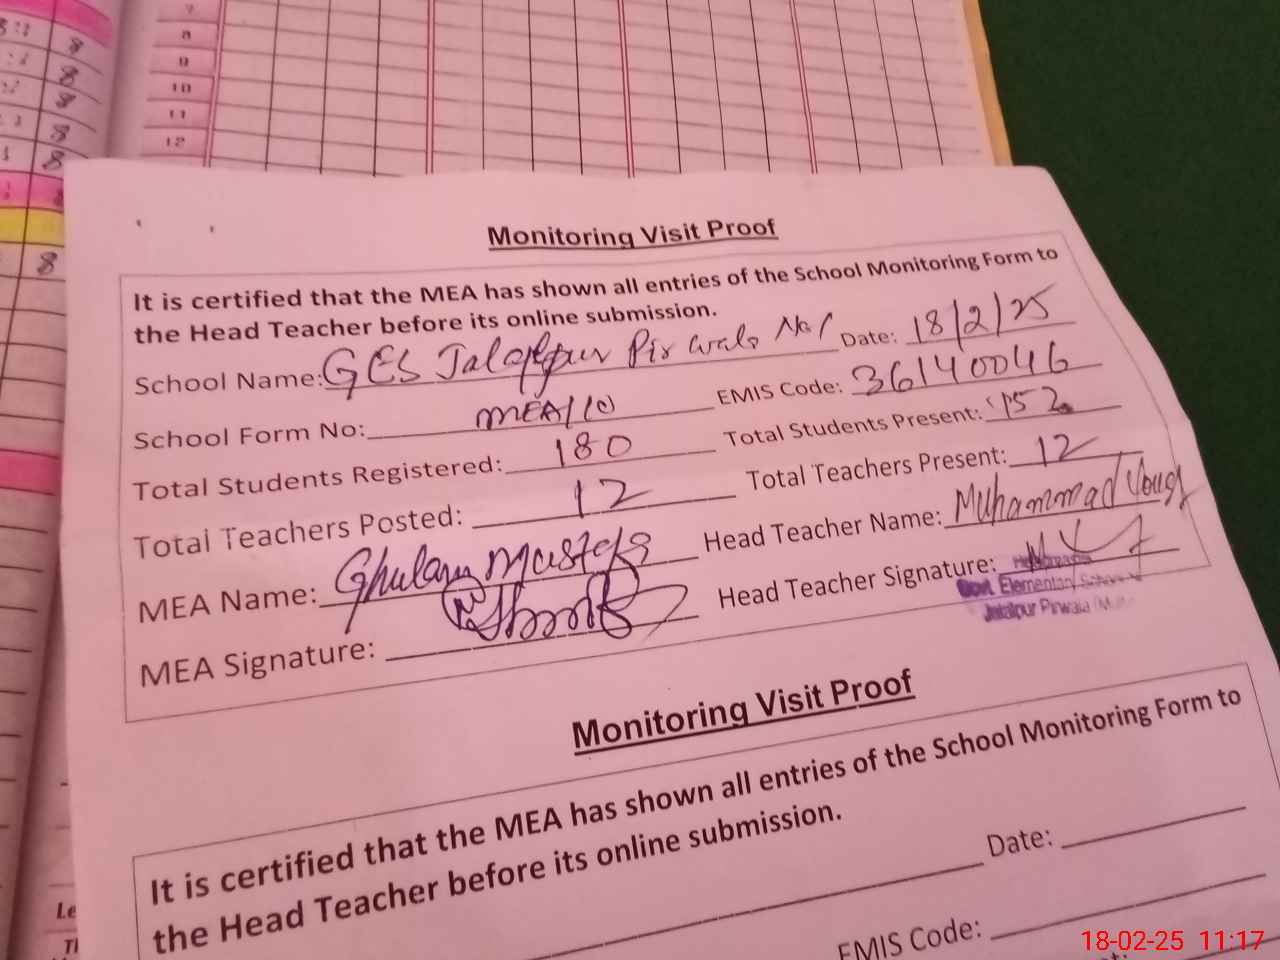 7
8
9
10
11
12
8
8
8
8
8
8
Monitoring Visit Proof
It is certified that the MEA has shown all entries of the School Monitoring Form to
the Head Teacher before its online submission.
School Name: GES Jalalpur Pir wala No.1 Date: 18/2/25
School Form No: MEA/10 EMIS Code: 36140046
Total Students Registered: 180 Total Students Present: 152
Total Teachers Posted: 12 Total Teachers Present: 12
MEA Name: Ghulam Mustafa Head Teacher Name: Muhammad
MEA Signature: Head Teacher Signature:
Govt. Elementary School
Jalalpur Pirwala
Monitoring Visit Proof
It is certified that the MEA has shown all entries of the School Monitoring Form to
the Head Teacher before its online submission.
Date:
EMIS Code:
18-02-25 11:17